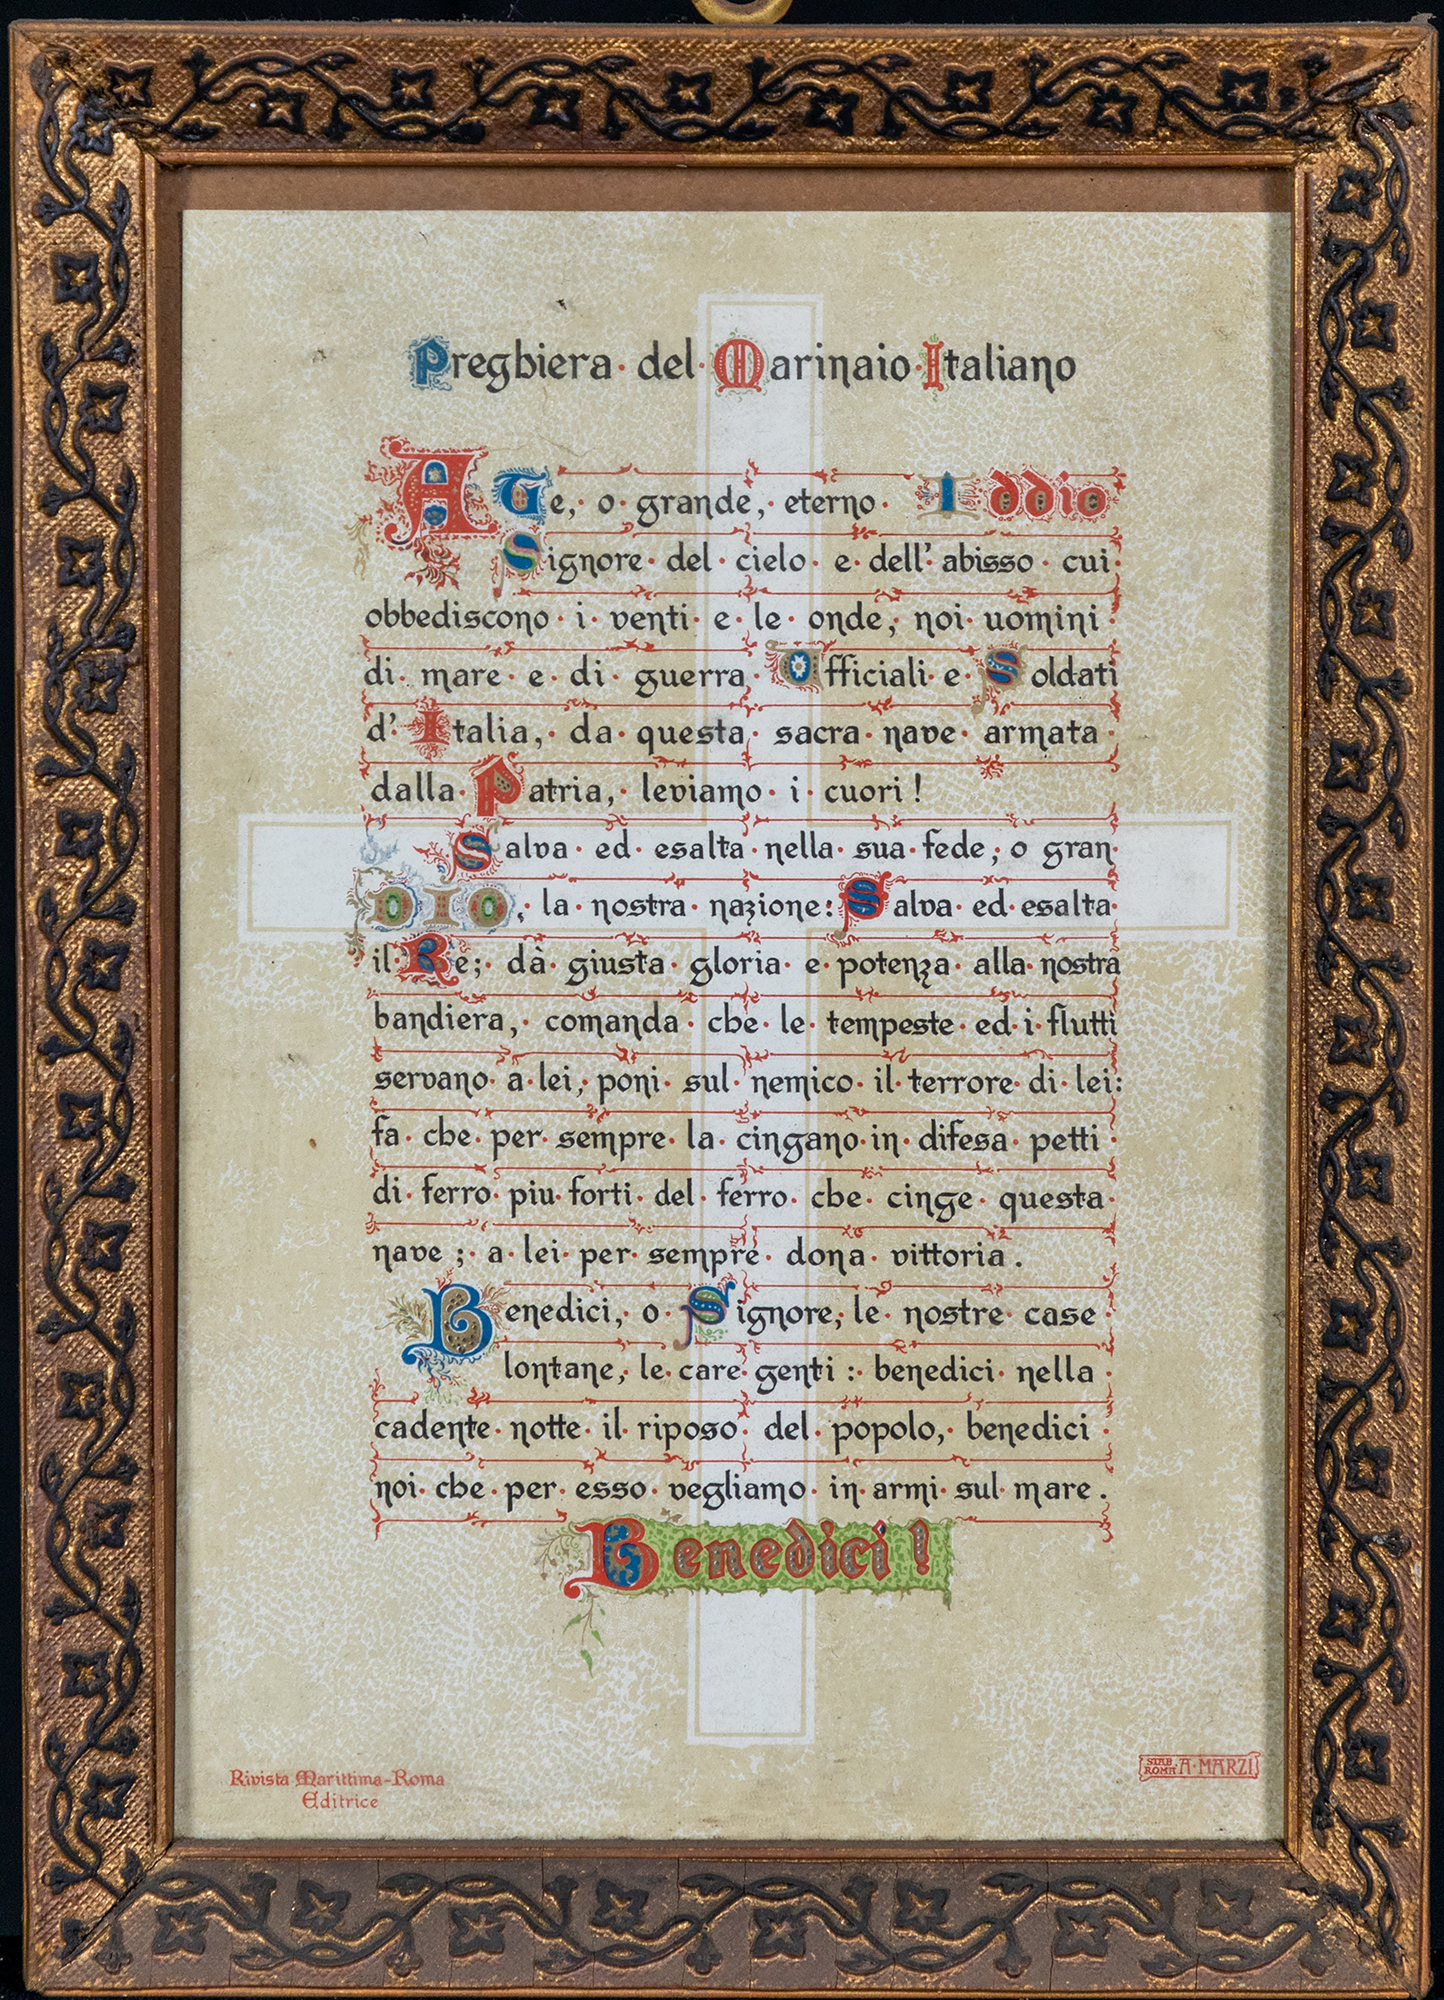 Preghiera · del · Marinaio · Italiano
A Te, · o · grande, · eterno · Iddio
Signore · del · cielo · e · dell' abisso · cui ·
obbediscono · i · venti · e · le · onde, · noi · uomini ·
di · mare · e · di · guerra, Ufficiali · e · Soldati
d' · Italia, · da · questa, · sacra · nave · armata ·
dalla · Patria, · leviamo · i · cuori !
Salva · ed · esalta · nella · sua · fede, · o gran ·
DIO, · la · nostra · nazione: Salva · ed · esalta ·
il · Re; · dà · giusta · gloria · e · potenza · alla · nostra
bandiera, · comanda · che · le · tempeste · ed · i · flutti
servano · a · lei, · poni · sul · nemico · il · terrore · di · lei:
fa · che · per · sempre · la · cingano · in · difesa · petti ·
di · ferro · piu · forti · del · ferro · che · cinge · questa ·
nave ; · a · lei · per · sempre · dona · vittoria .
Benedici, · o · Signore, · le · nostre · case ·
lontane, · le · care · genti : · benedici · nella ·
cadente · notte · il · riposo · del · popolo, · benedici ·
noi · che · per · esso · vegliamo · in · armi · sul · mare .
Benedici !
Rivista Marittima-Roma
Editrice
STAB. ROMA A · MARZI